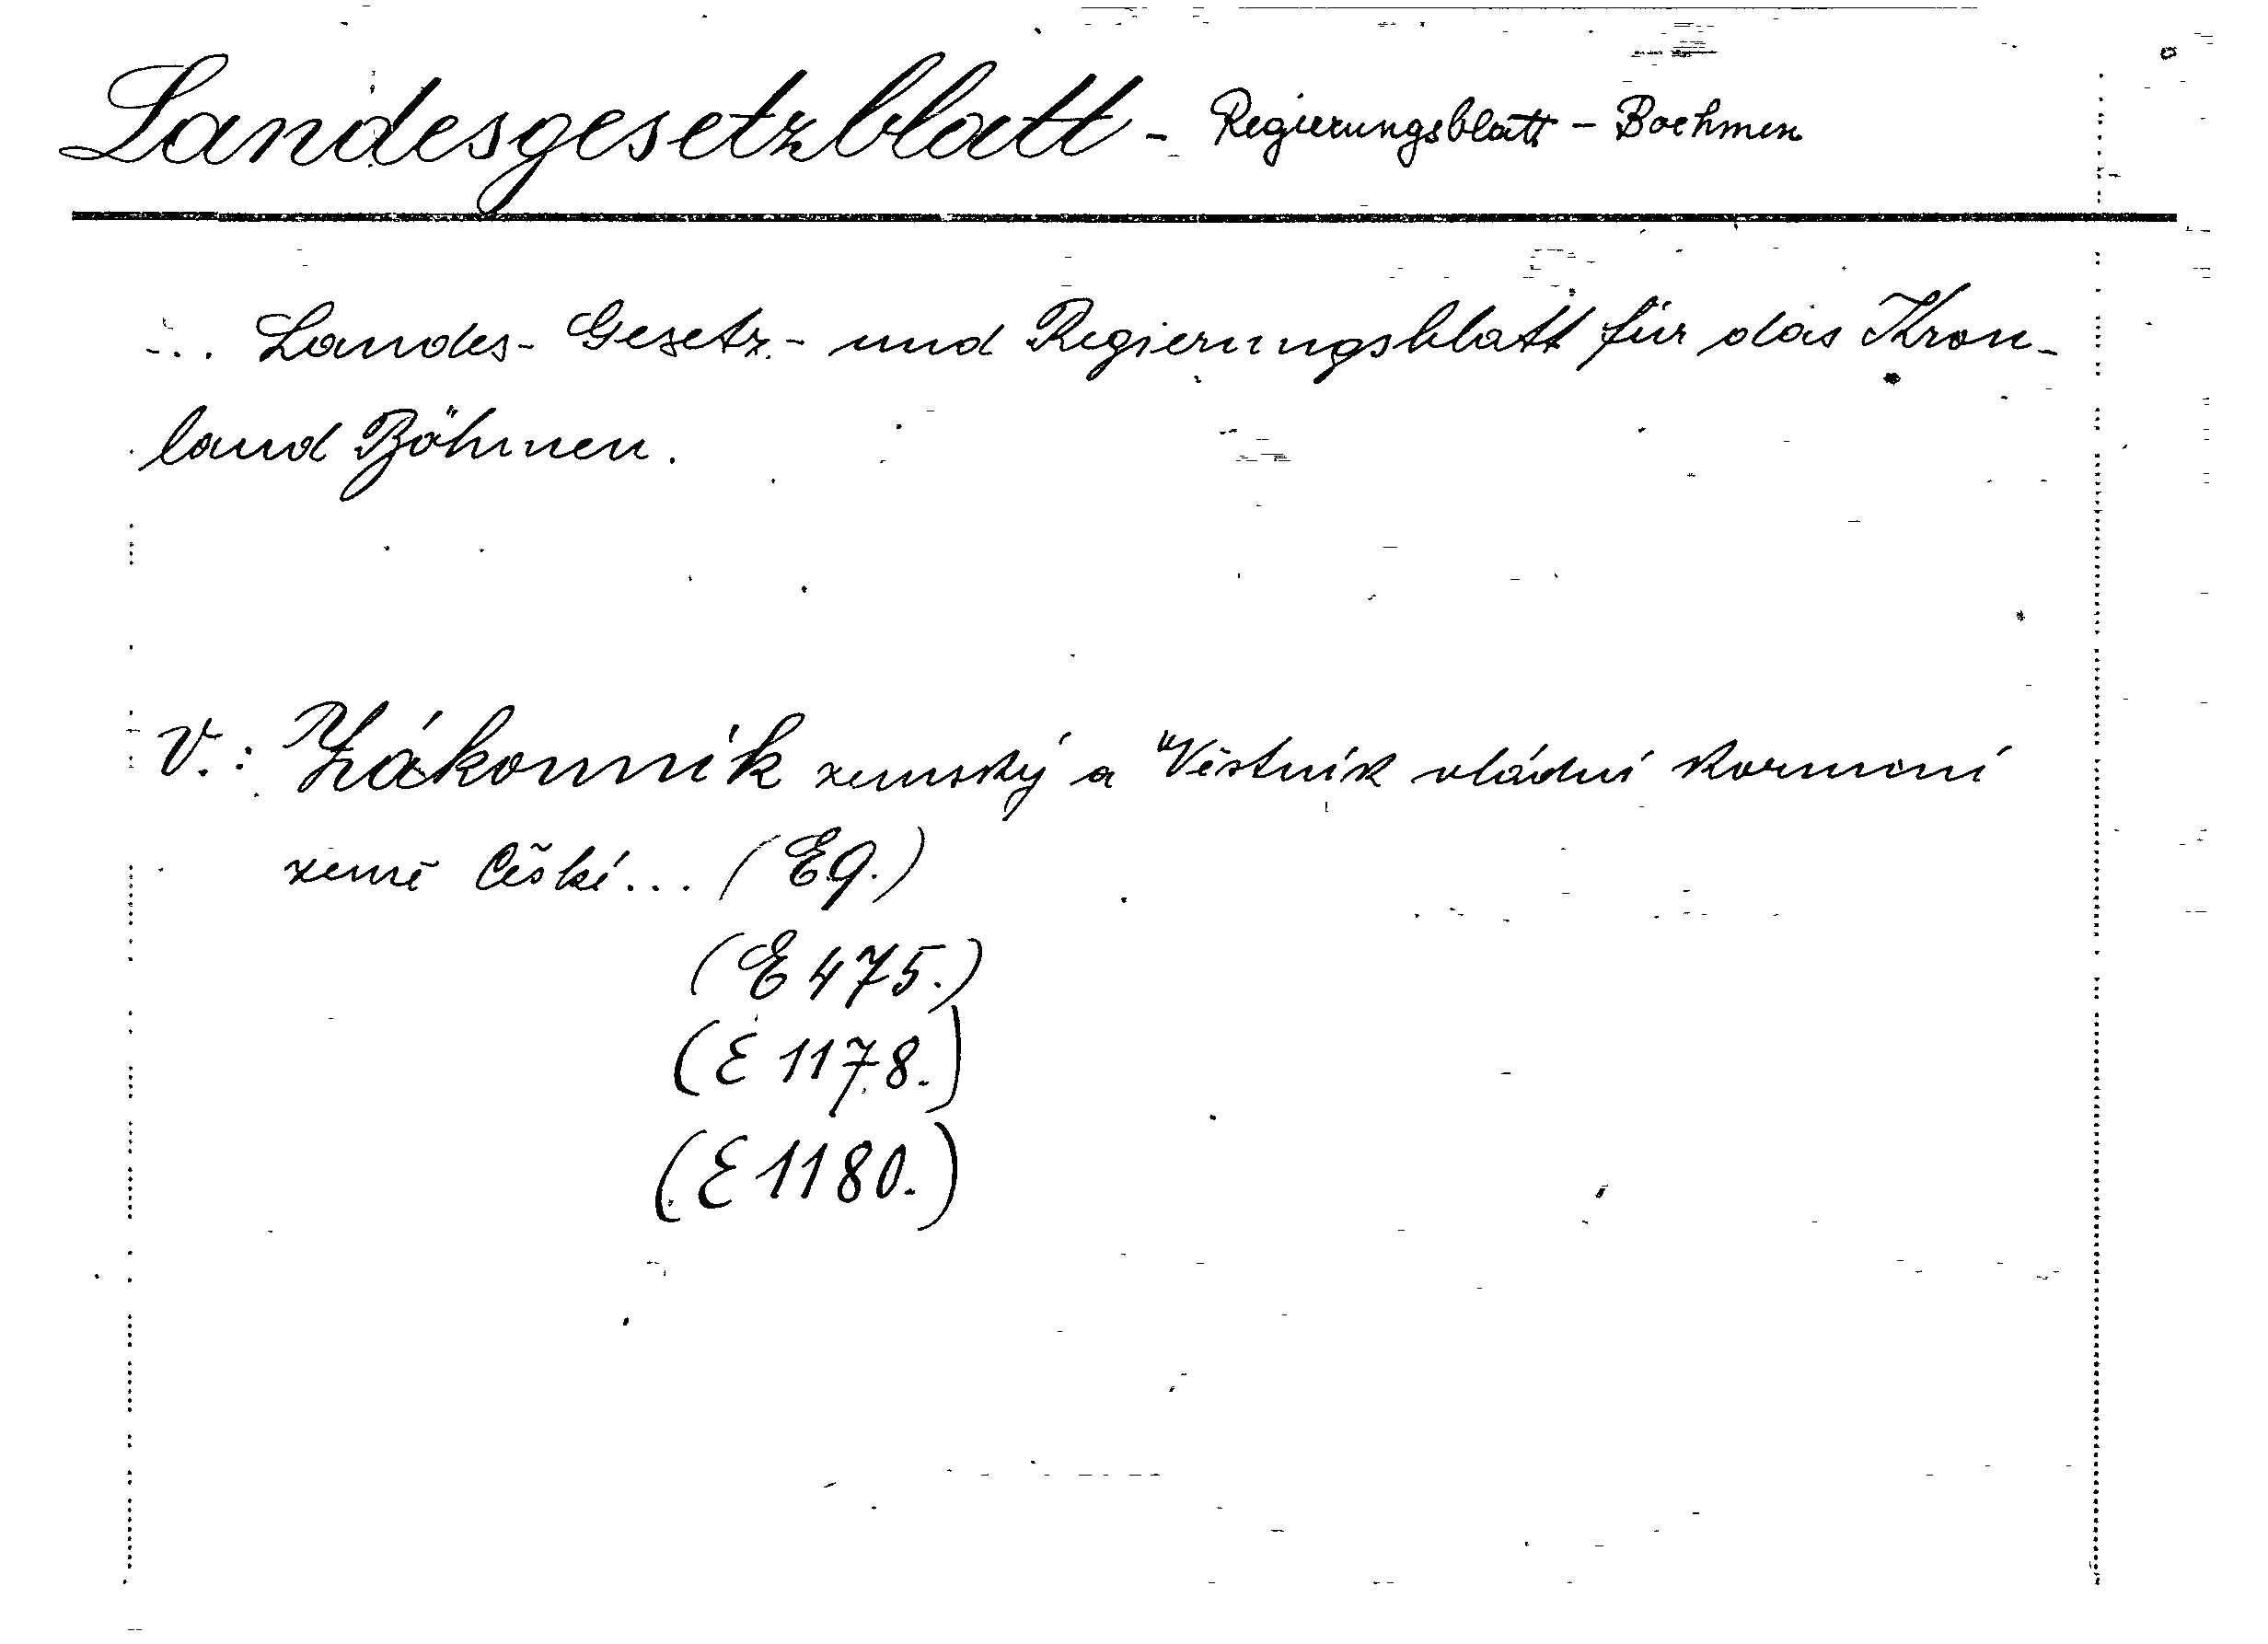 Landesgesetzblatt - Regierungsblatt - Boehmen
... Landes- Gesetz.- und Regierungsblatt für das Kron-
land Böhmen.
V.: Zákonník zemský a Věstník vládní korunní
země České... (E9.)
(E 475.)
(E 1178.)
(E 1180.)